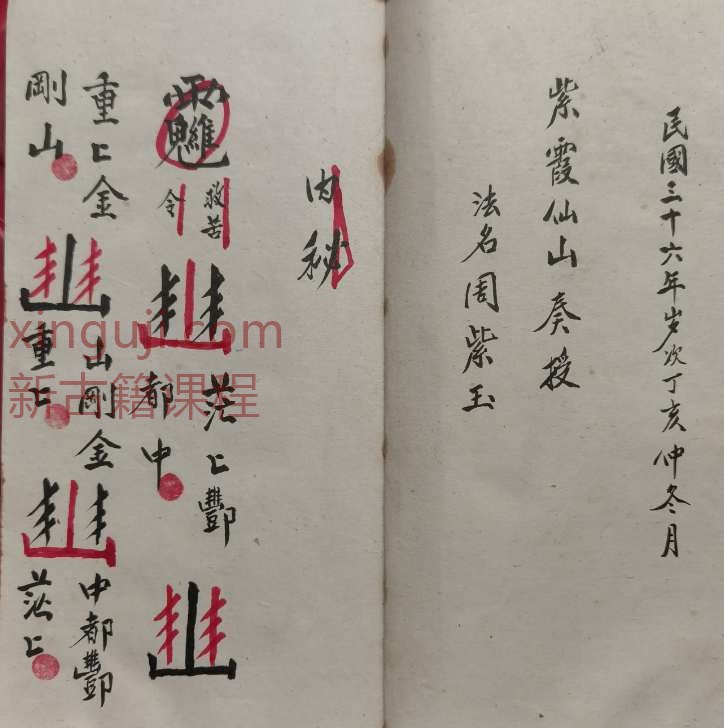 民國三十六年岁次丁亥仲冬月
紫霞仙山奏授
法名周紫玉
内秘
救苦
令
茫上酆
都中
重上金
剛山
山剛金
重上
中都酆
茫上
xinguji.com
新古籍课程